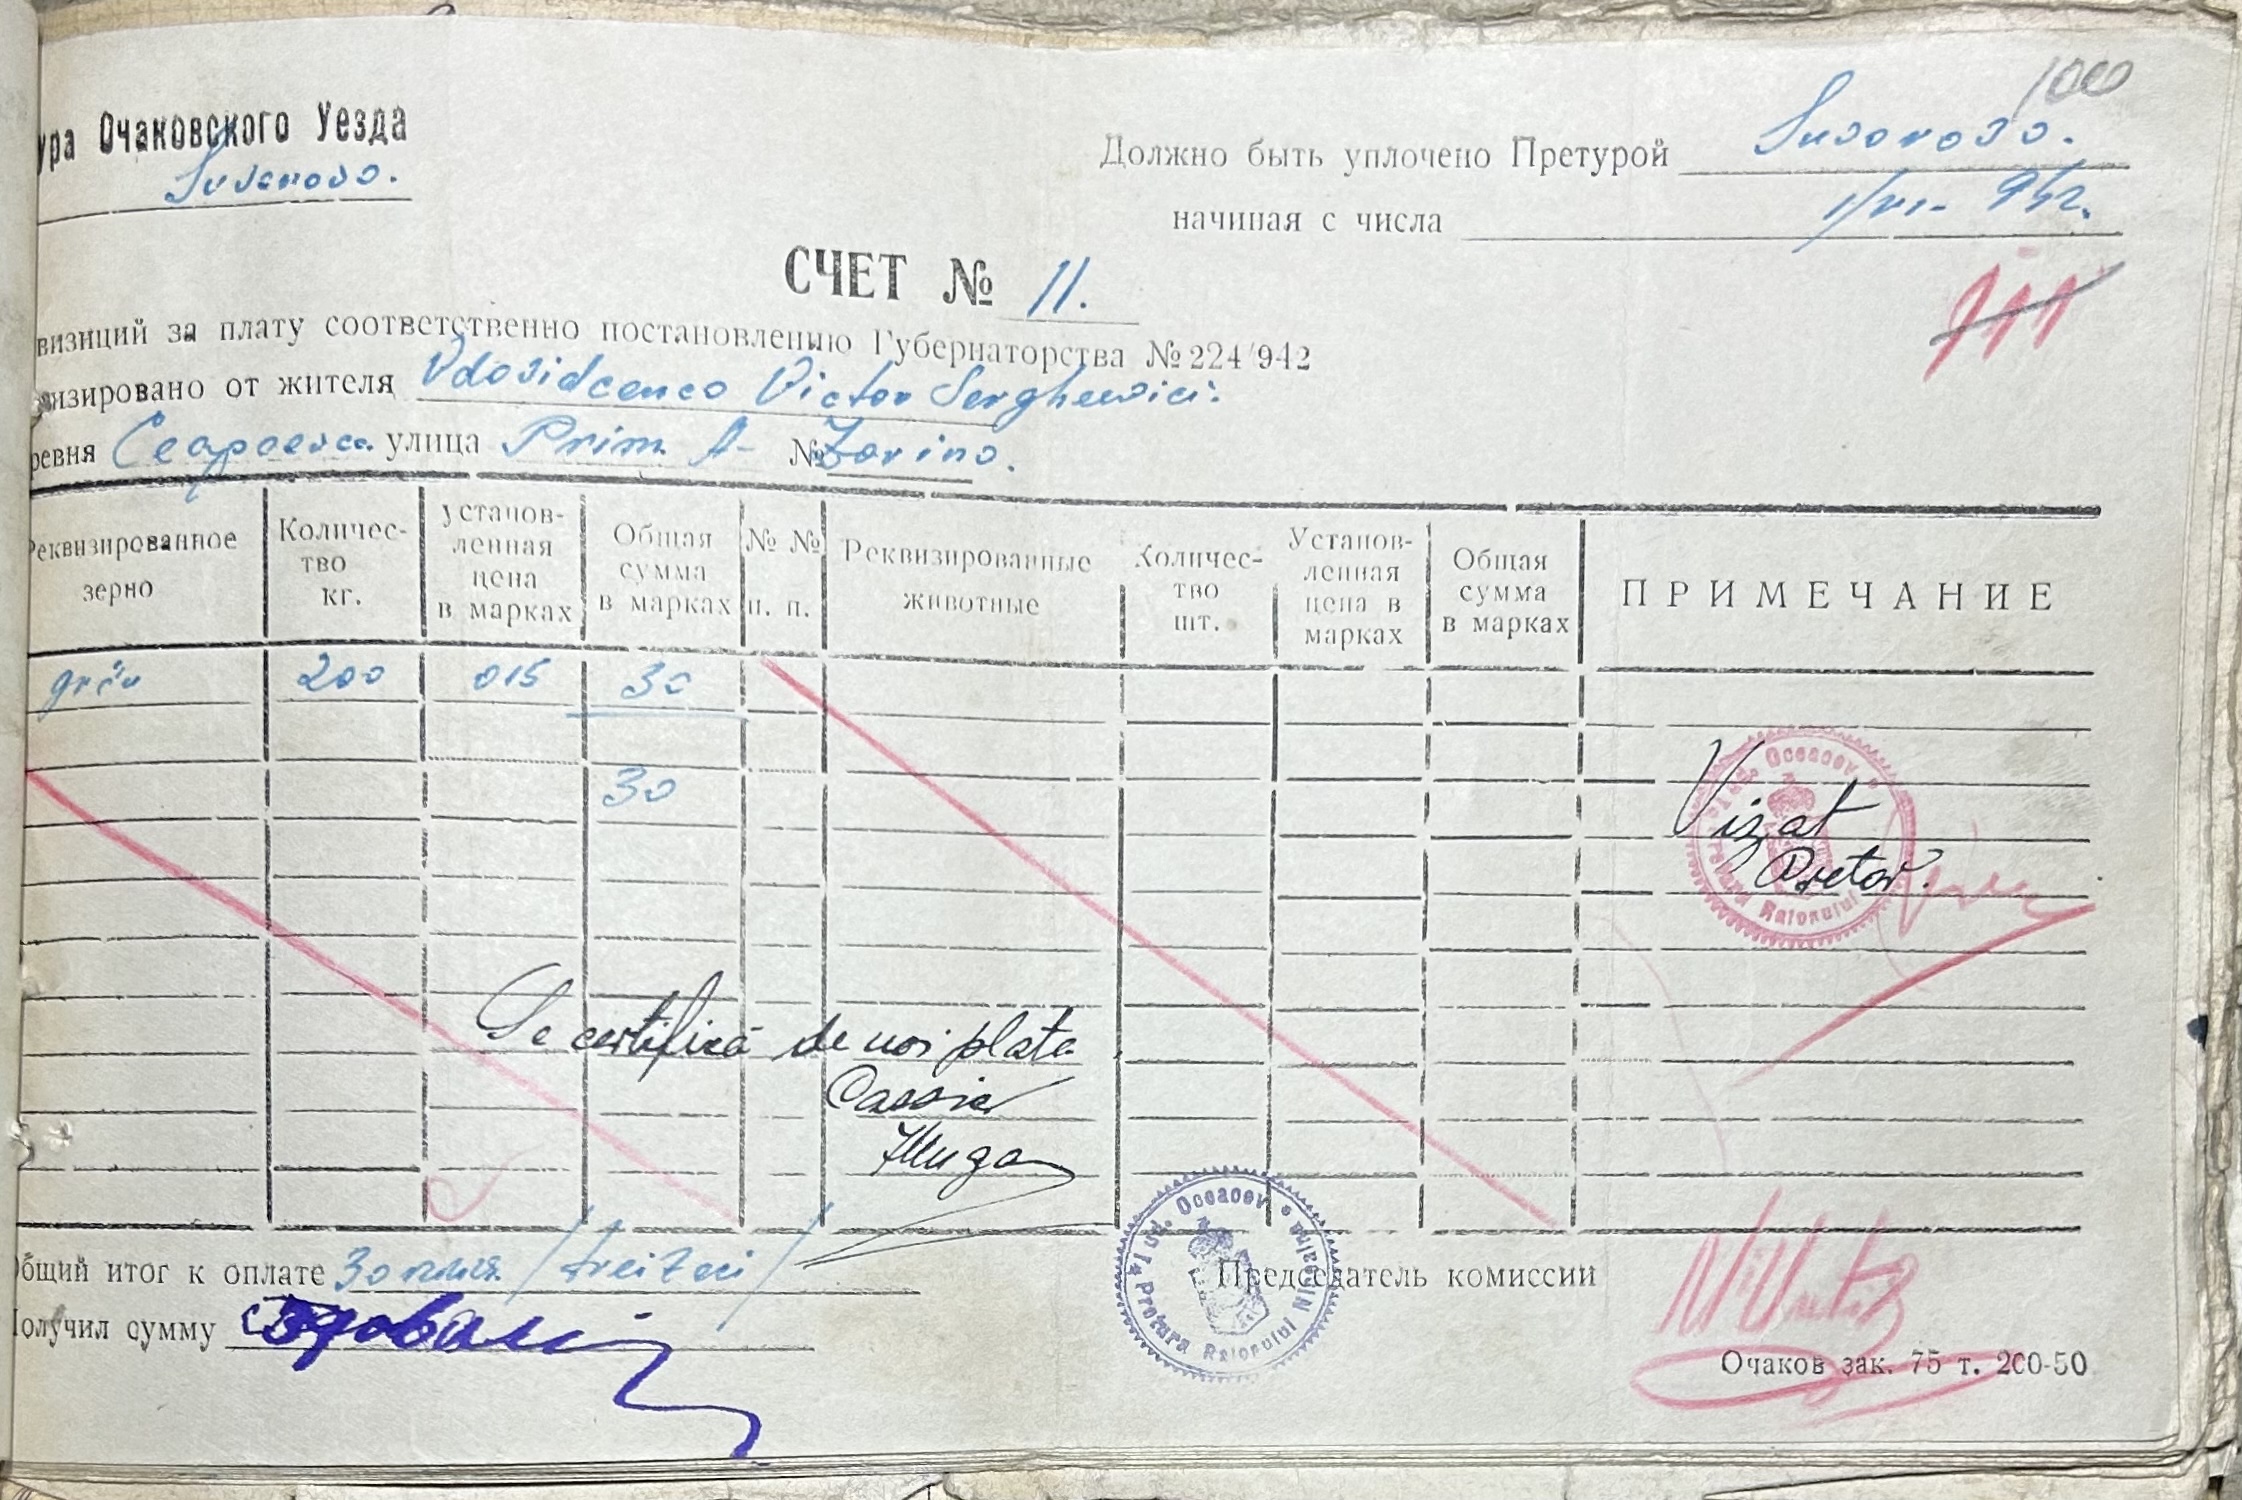 100
ура Очаковского Уезда
Suvorovo.
Должно быть уплочено Претурой Suvorovo.
начиная с числа 1/VI- 942.
СЧЕТ № 11.
111
визиций за плату соответственно постановлению Губернаторства № 224/942
изировано от жителя Vdovidcenco Victor Serghewici.
ревня улица Prim. A- № Zorino.
Реквизированное зерно
Количес-тво кг.
установ-ленная цена в марках
Общая сумма в марках
№ № п. п.
Реквизированные животные
Количес-тво шт.
Установ-ленная цена в марках
Общая сумма в марках
ПРИМЕЧАНИЕ
grâu 200 015 30
30
Jud. Oceacov
Pretura Raionului
Vizat
Pretor.
Se certifică de noi plata
Cassier
Общий итог к оплате 30 /treizeci/
Председатель комиссии
Jud. Oceacov * Pretura Raionului
Получил сумму
Очаков зак. 75 т. 200-50